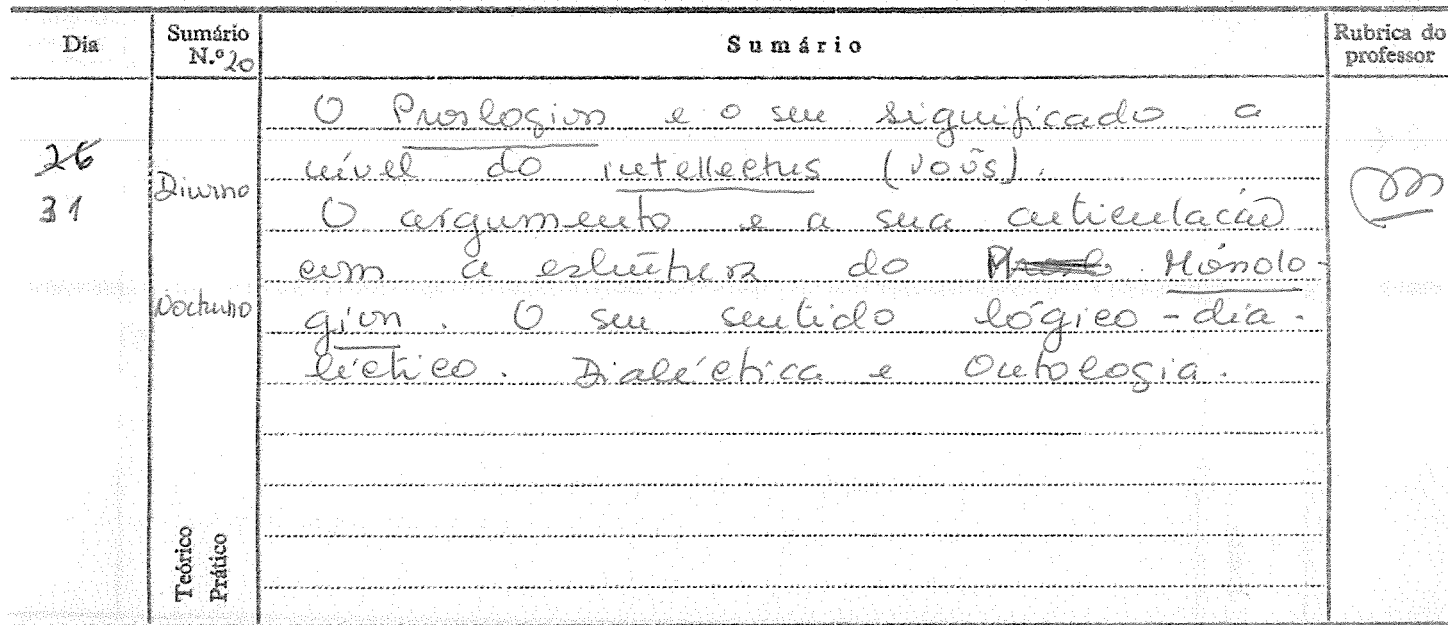 Dia
Sumário N.º 20
Sumário
Rubrica do professor
26
31
Diurno
Nocturno
O Proslogion e o seu significado a
nível do intellectus (νοῦς).
O argumento e a sua articulação
com a estrutura do Mónolo-
gion. O seu sentido lógico-dia-
léctico. Dialéctica e Ontologia.
Teórico
Prático